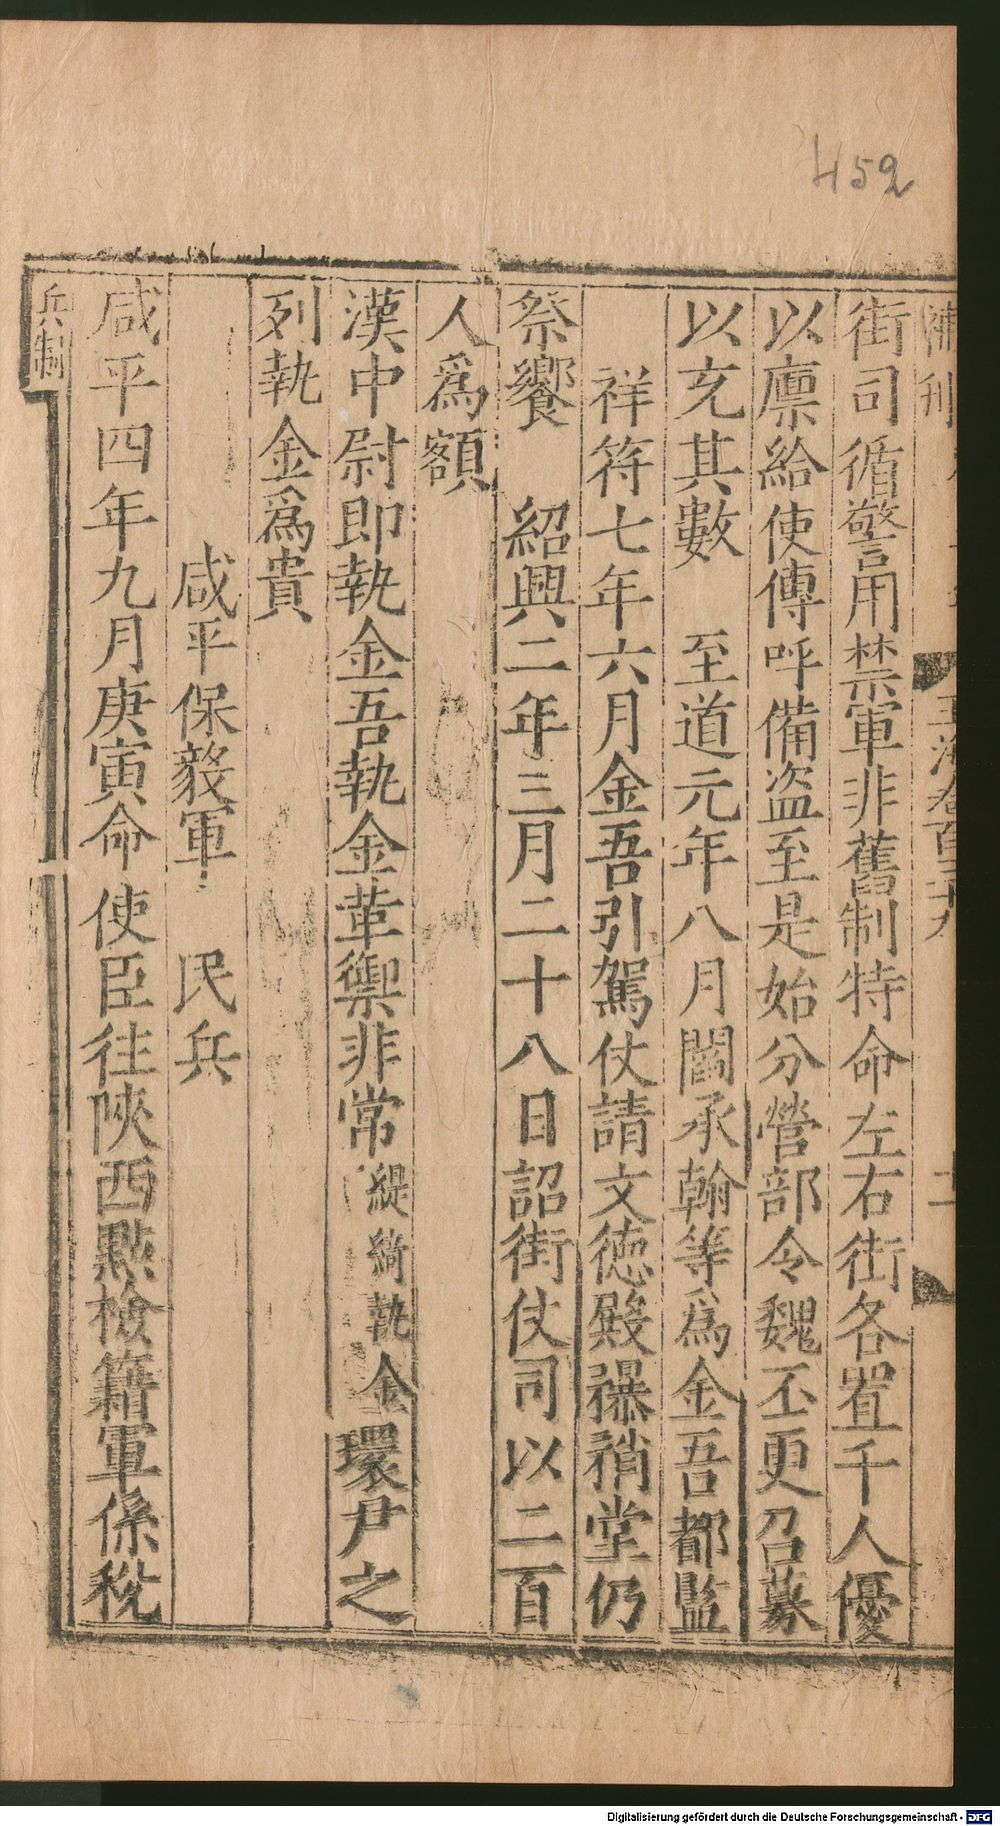 452
玉海卷百三十九
街司循警用禁軍非舊制特命左右街各置千人優
以廪給使傳呼備盗至是始分營部令魏丕更召募
以充其數 至道元年八月閻承翰等爲金吾都監
祥符七年六月金吾引駕仗請文德殿瀑矟堂仍
祭饗 紹興二年三月二十八日詔街仗司以二百
人爲額
漢中尉即執金吾執金革禦非常緹綺執金環尹之
列執金爲貴
咸平保毅軍 民兵
咸平四年九月庚寅命使臣往陜西㸃檢籍軍係稅
兵制
Digitalisierung gefördert durch die Deutsche Forschungsgemeinschaft - DFG